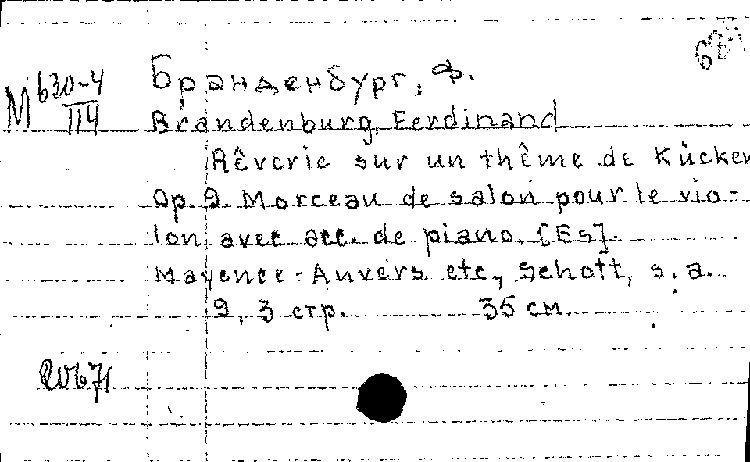 М 630-4
III 4
Бранденбург, Ф.
Brandenburg, Ferdinand
Rêverie sur un thême de Kücken
Op. 9. Morceau de salon pour le vio-
lon avec acc. de piano. [Es].
Mayence-Anvers etc, Schott, s. a.
9, 3 стр. 35 см.
20671